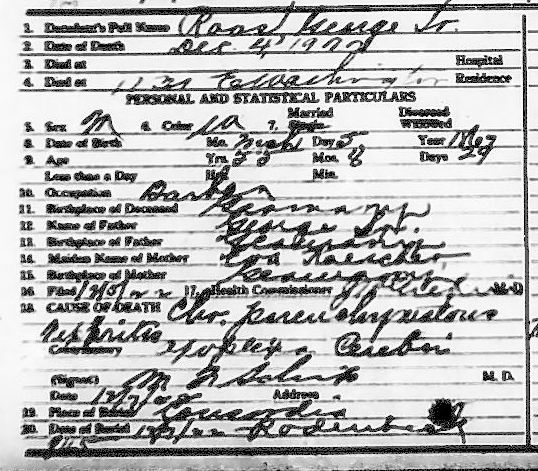 1. Decedent's Full Name Raas George Jr.
2. Date of Death Dec 4, 1922
3. Died at Hospital
4. Died at 1131 E Washington Residence
PERSONAL AND STATISTICAL PARTICULARS
Married Divorced
5. Sex M 6. Color W 7. Single Widowed
8. Date of Birth Mo. Day 5 Year 1867
9. Age Yrs. 55 Mos. 8 Days 29
Less than a Day Hrs. Min.
10. Occupation
11. Birthplace of Deceased Germany
12. Name of Father George Sr.
13. Birthplace of Father Germany
14. Maiden Name of Mother
15. Birthplace of Mother Germany
16. Filed 12/5/22 17. Health Commissioner M.D.
18. CAUSE OF DEATH Chr. parenchymatous
Nephritis
Contributory Apoplexia Cerebri
(Signed) M. D.
Date Address
19. Place of Burial Concordia
20. Date of Burial 12/7/22